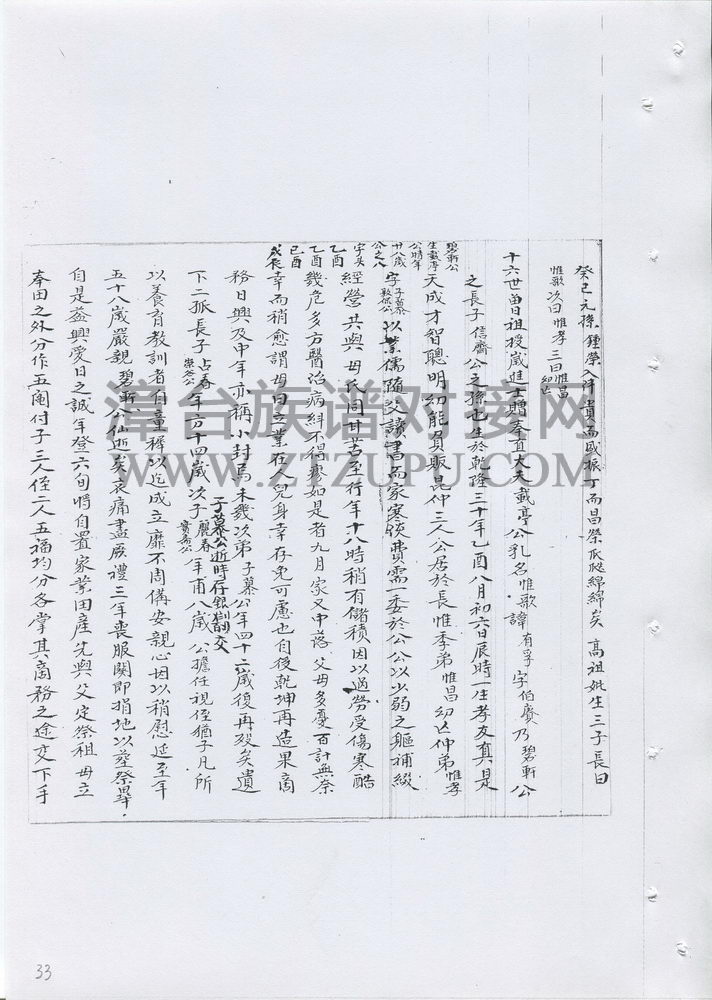 癸巳元孫鍾榮入泮貴而盛振丁而昌榮瓜瓞綿綿矣 高祖妣生三子長曰
惟歌次曰惟孝三曰惟昌幼亡
十六世曾祖授歲進士贈奉直大夫載亭公乳名惟歌諱有孚字伯賡乃碧軒公
之長子信齋公之孫也生於乾隆三十年乙酉八月初六日辰時一生孝友真是
碧軒公生載亭公時年廿八歲
天成才智聰明幼能負販昆仲三人公居於長惟季弟惟昌幼亡仲弟惟孝
字子慕敦保公以業儒隨父讀書而家寒俠費需一委於公公以少弱之軀補綴
經營共與母氏同甘苦至行年十八時稍有儲積因以過勞受傷寒酷
乙酉
幾危多方醫治病糾不得瘳如是者九月家又中落父母多憂百計無奈
己酉
幸而稍愈謂母曰立業在兒身幸存免可慮也自後乾坤再造果商
務日興及中年亦稱小封焉未幾次弟子慕公年四十六歲復再歿矣遺
子慕公逝時存銀 交
下二孤長子占春年方十四歲次子麗春年甫八歲公擔任視侄猶子凡所
以養育教訓者自童穉以迄成立靡不周備安親心因以稍慰延至年
五十八歲嚴親碧軒公仙逝矣哀痛盡展禮三年喪服闋即捐地以塋祭畢
自是益興愛日之誠年登六旬將自置家業田產先與父定祭祖母立
奉田之外分作五鬮付子三人侄二人五福均分各掌其商務之途交下手
漳台族谱对接网
WWW.ZTZUPU.COM
33